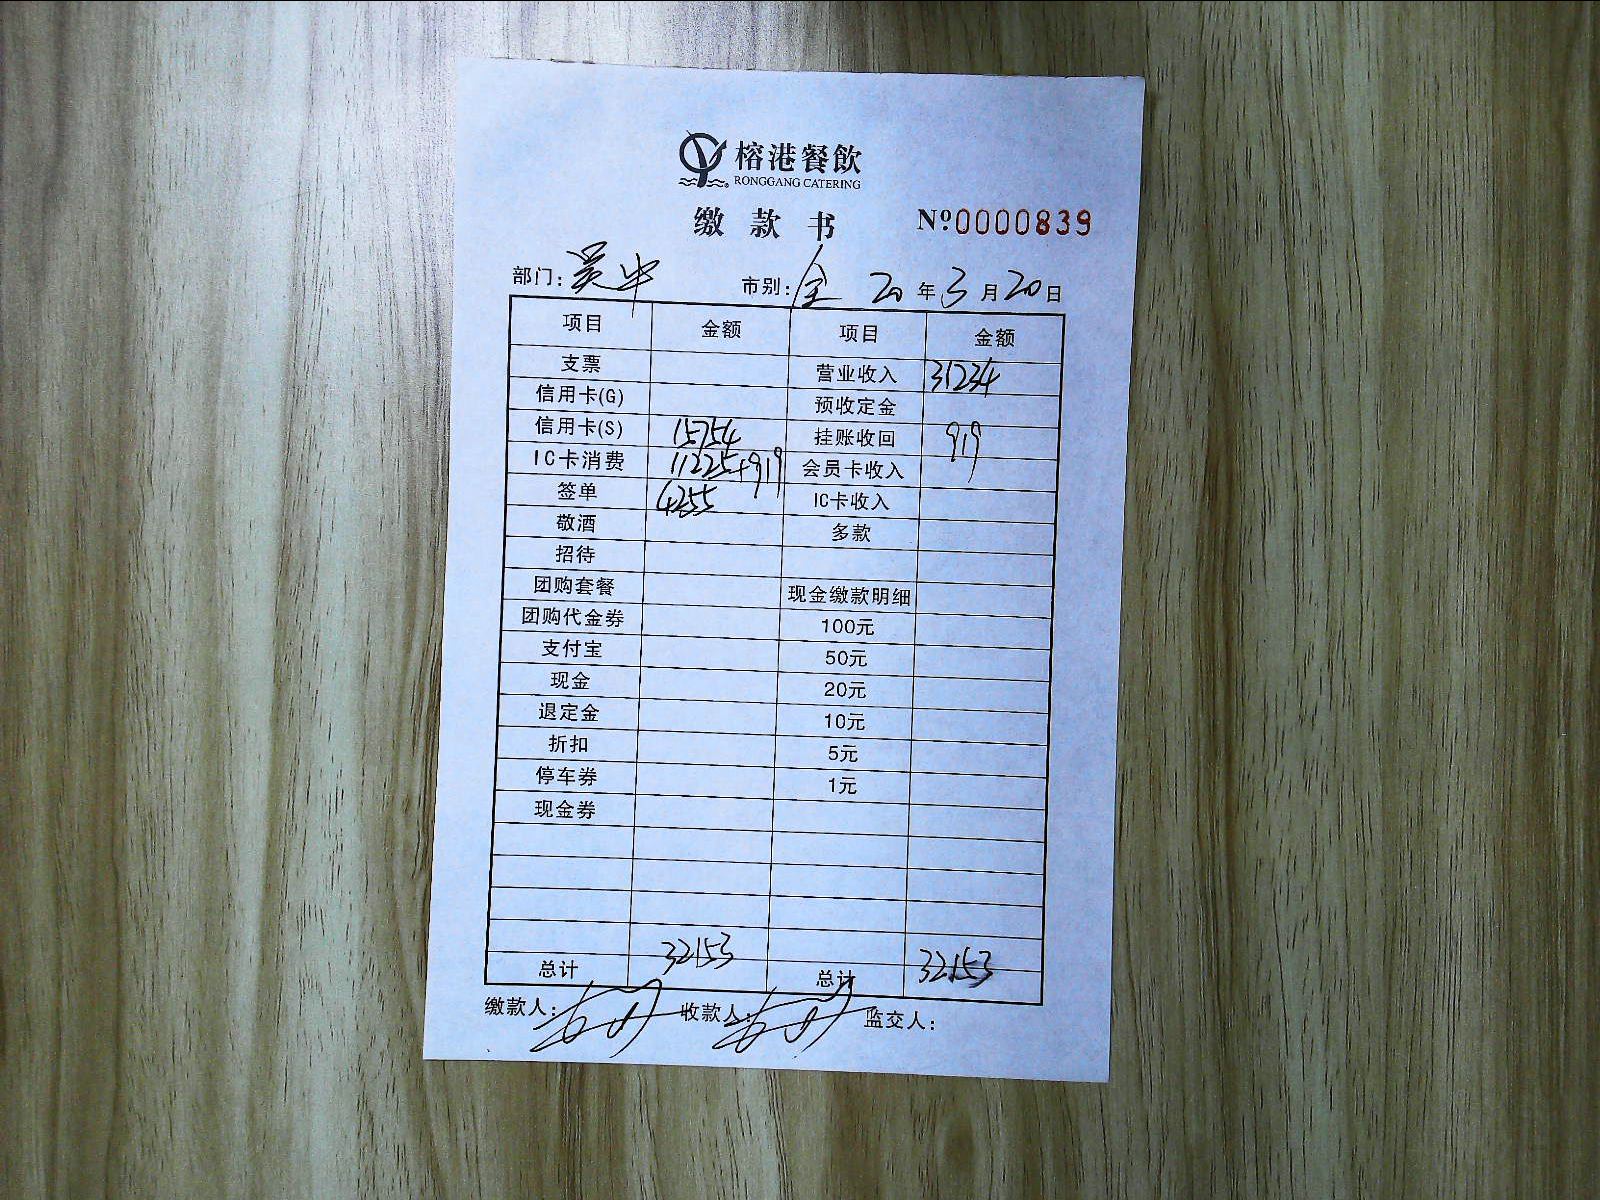 榕港餐飲
RONGGANG CATERING
缴款书 №0000839
部门: 吴中 市别: 全 20年3月20日
项目 金额 项目 金额
支票 营业收入 31234
信用卡(G) 预收定金
信用卡(S) 15754 挂账收回 919
IC卡消费 11225+919 会员卡收入
签单 4255 IC卡收入
敬酒 多款
招待
团购套餐 现金缴款明细
团购代金券 100元
支付宝 50元
现金 20元
退定金 10元
折扣 5元
停车券 1元
现金券
总计 32153 总计 32153
缴款人: 收款人: 监交人: